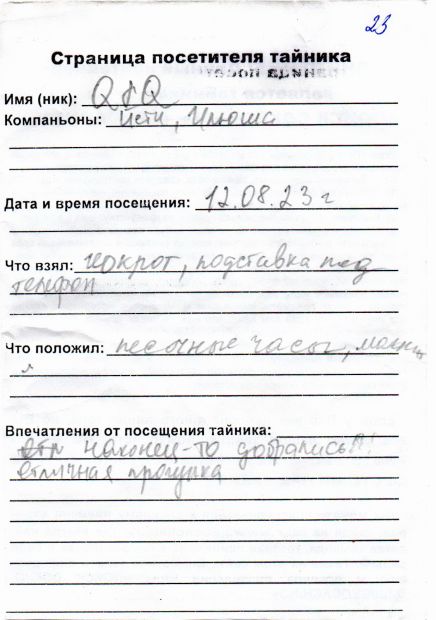 23
Страница посетителя тайника
Имя (ник): Q&Q
Компаньоны: Исти, Илюша
Дата и время посещения: 12.08.23 г
Что взял: геокрот, подставка под
телефон
Что положил: песочные часы,
Впечатления от посещения тайника:
наконец-то добрались!!!
отличная прогулка